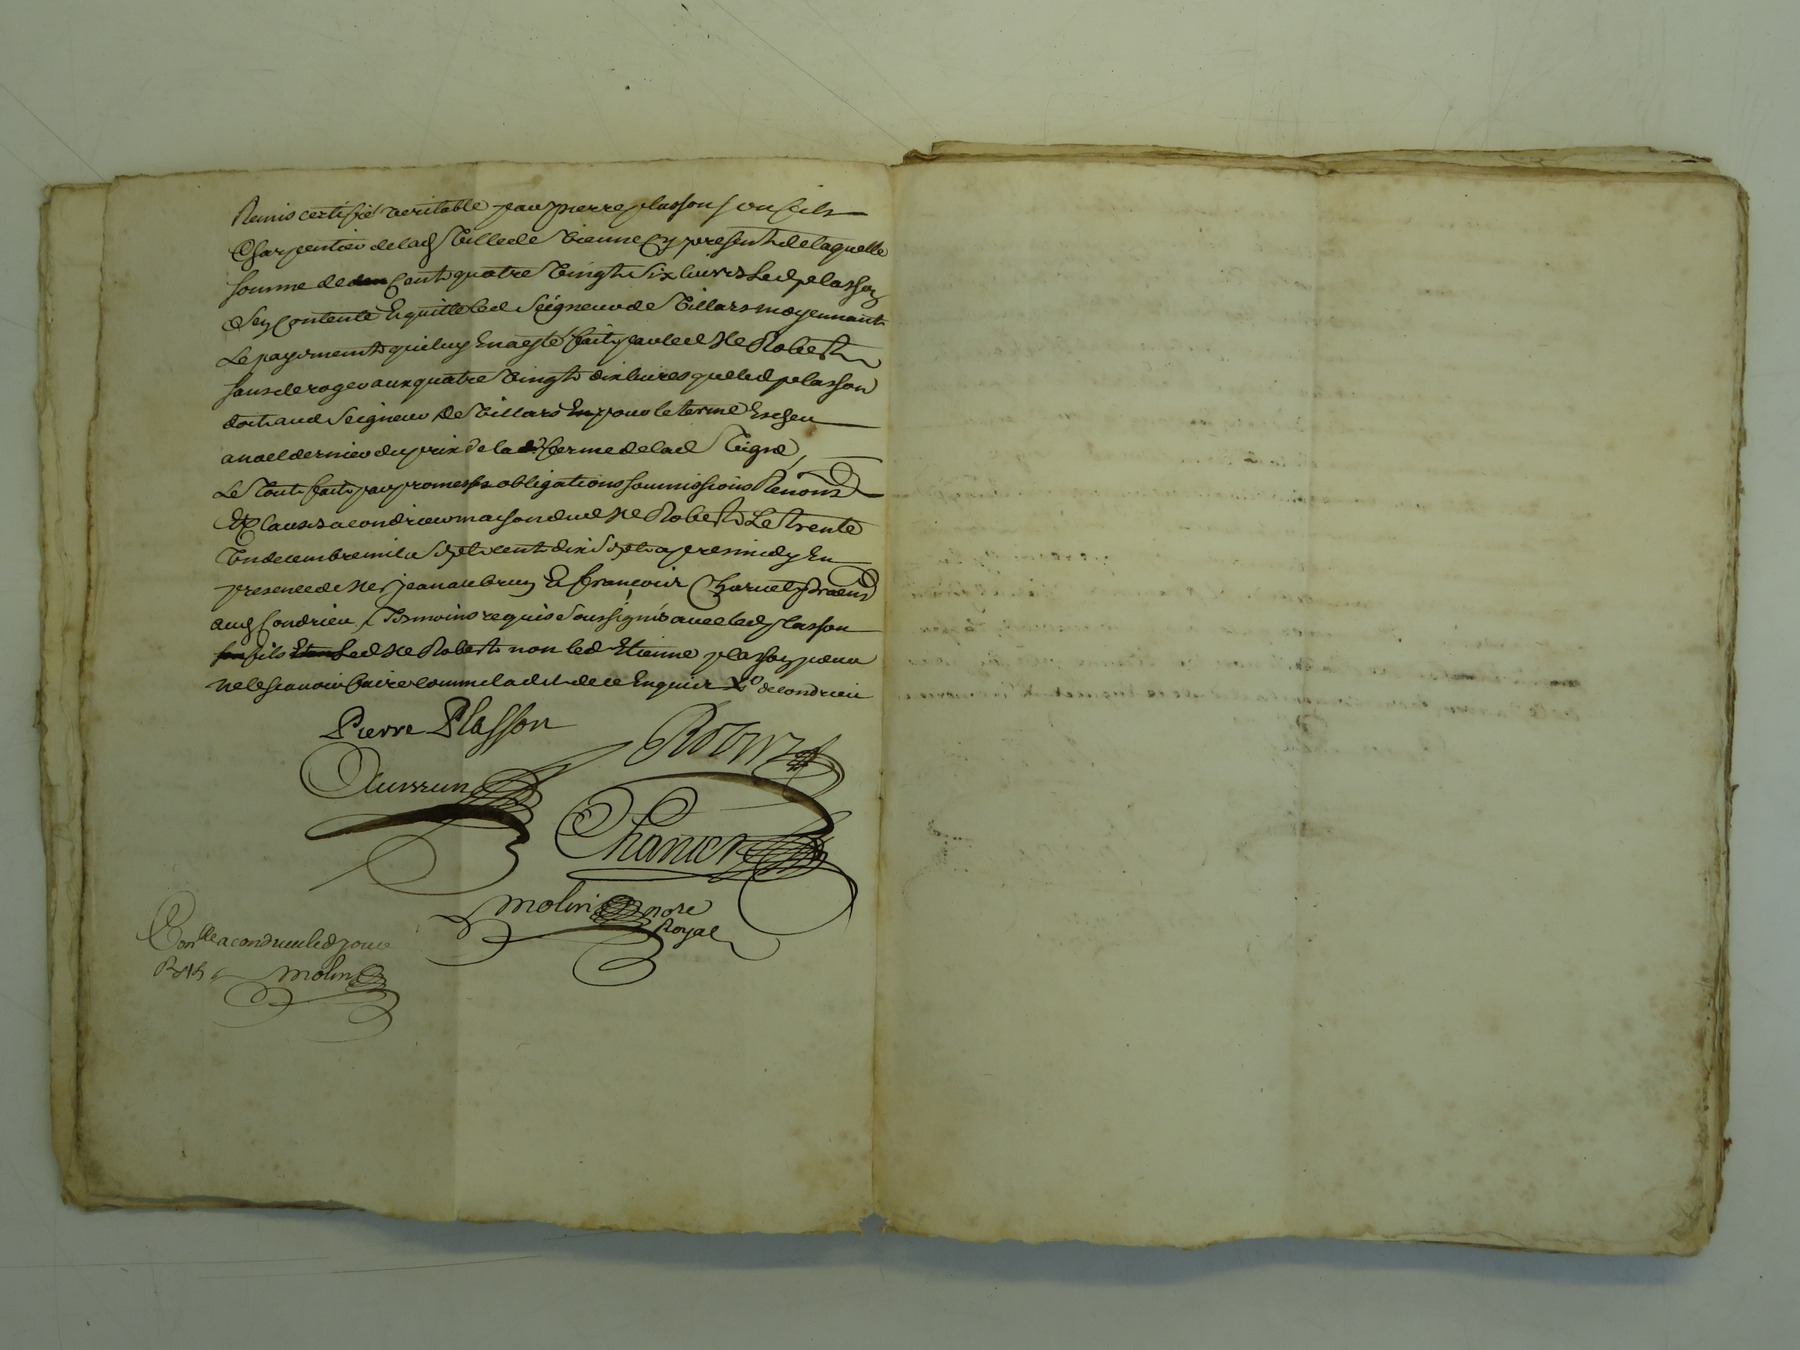 Remis certifié veritable par pierre plasson son fils
Charpentier de lad Ville de Vienne Cy present de laquelle
somme de cent quatre Vingt Six livres Led plasson
Sen Contente Et quitte led Seigneur de Villars moyennant
Le payement qui luy En a esté fait par led Me Robert
sans deroger aux quatre Vingt dix livres que led plasson
doit aud Seigneur de Villars pour le terme Escheu
a noel dernier du prix de la ferme de lad Vigne
Le Tout fait par promesses obligations soumissions Renons
Et Clauses a condrieu maison dud Me Robert Le trente
un decembre mil Sept cent dix Sept apres midy En
presence de Me jean aubrun Et francois Charvet
aud Condrieu Tesmoins requis Soussignés avec led plasson
fils Led Me Robert non led Etienne plasson pour
ne le scavoir faire comme la dit de ce Enquis de condrieu
Pierre Plasson
Robert
Charvet
molin nore
Royal
Conlle a condrieu led jour
molin